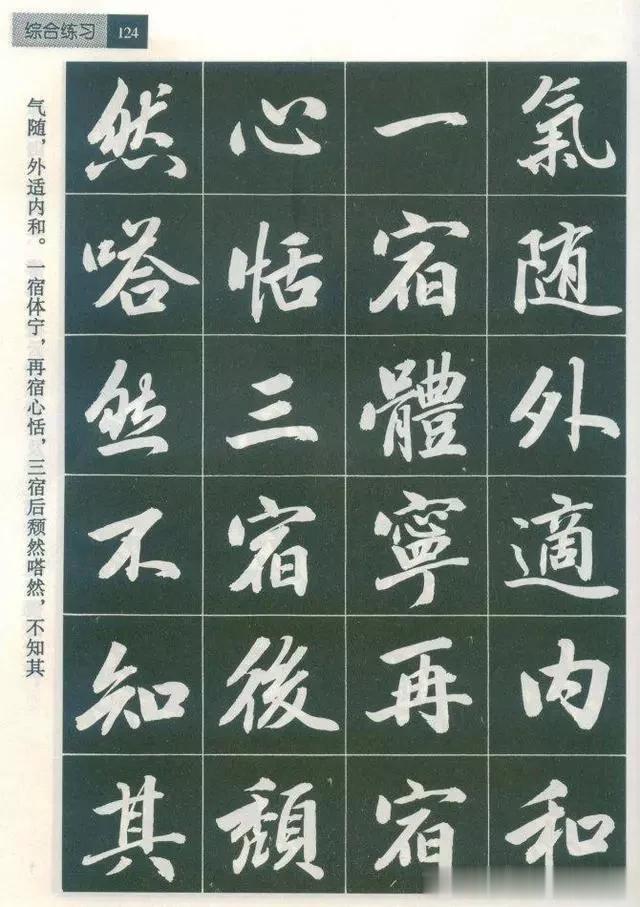 综合练习 124
氣随外適内和
一宿體寧再宿
心恬三宿後頽
然嗒然不知其
气随，外适内和。一宿体宁，再宿心恬，三宿后颓然嗒然，不知其